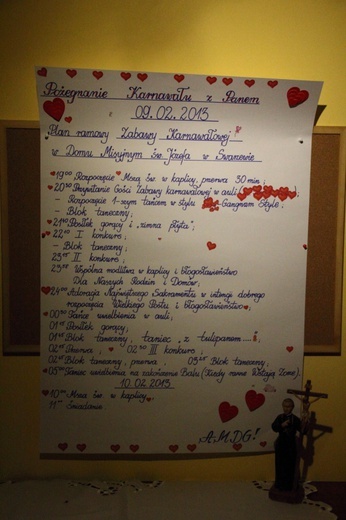 Pożegnanie Karnawału z Panem
09.02.2013
Plan ramowy Zabawy Karnawałowej
w Domu Misyjnym św. Józefa w
19 00 Rozpoczęcie Msza św. w kaplicy, przerwa 30 min;
20 30 Przywitanie Gości Zabawy karnawałowej w auli
- Rozpoczęcie 1-szym tańcem w stylu Gangnam Style;
- Blok taneczny;
Posiłek gorący i „zimna płyta”;
I konkurs;
- Blok taneczny;
II konkurs;
Wspólna modlitwa w kaplicy i błogosławieństwo
Dla Naszych Rodzin i Domów;
24 00 Adoracja Najświętszego Sakramentu w intencji dobrego
rozpoczęcia Wielkiego Postu i błogosławieństwo;
Taniec uwielbienia w auli;
Posiłek gorący;
Blok taneczny, taniec z tulipanem....;
Przerwa; III konkurs;
Blok taneczny, przerwa; Blok taneczny;
Taniec uwielbienia na zakończenie Balu (Kiedy ranne Wstają Zorze).
10.02.2013
10 Msza św. w kaplicy
11 Śniadanie
AMDG!